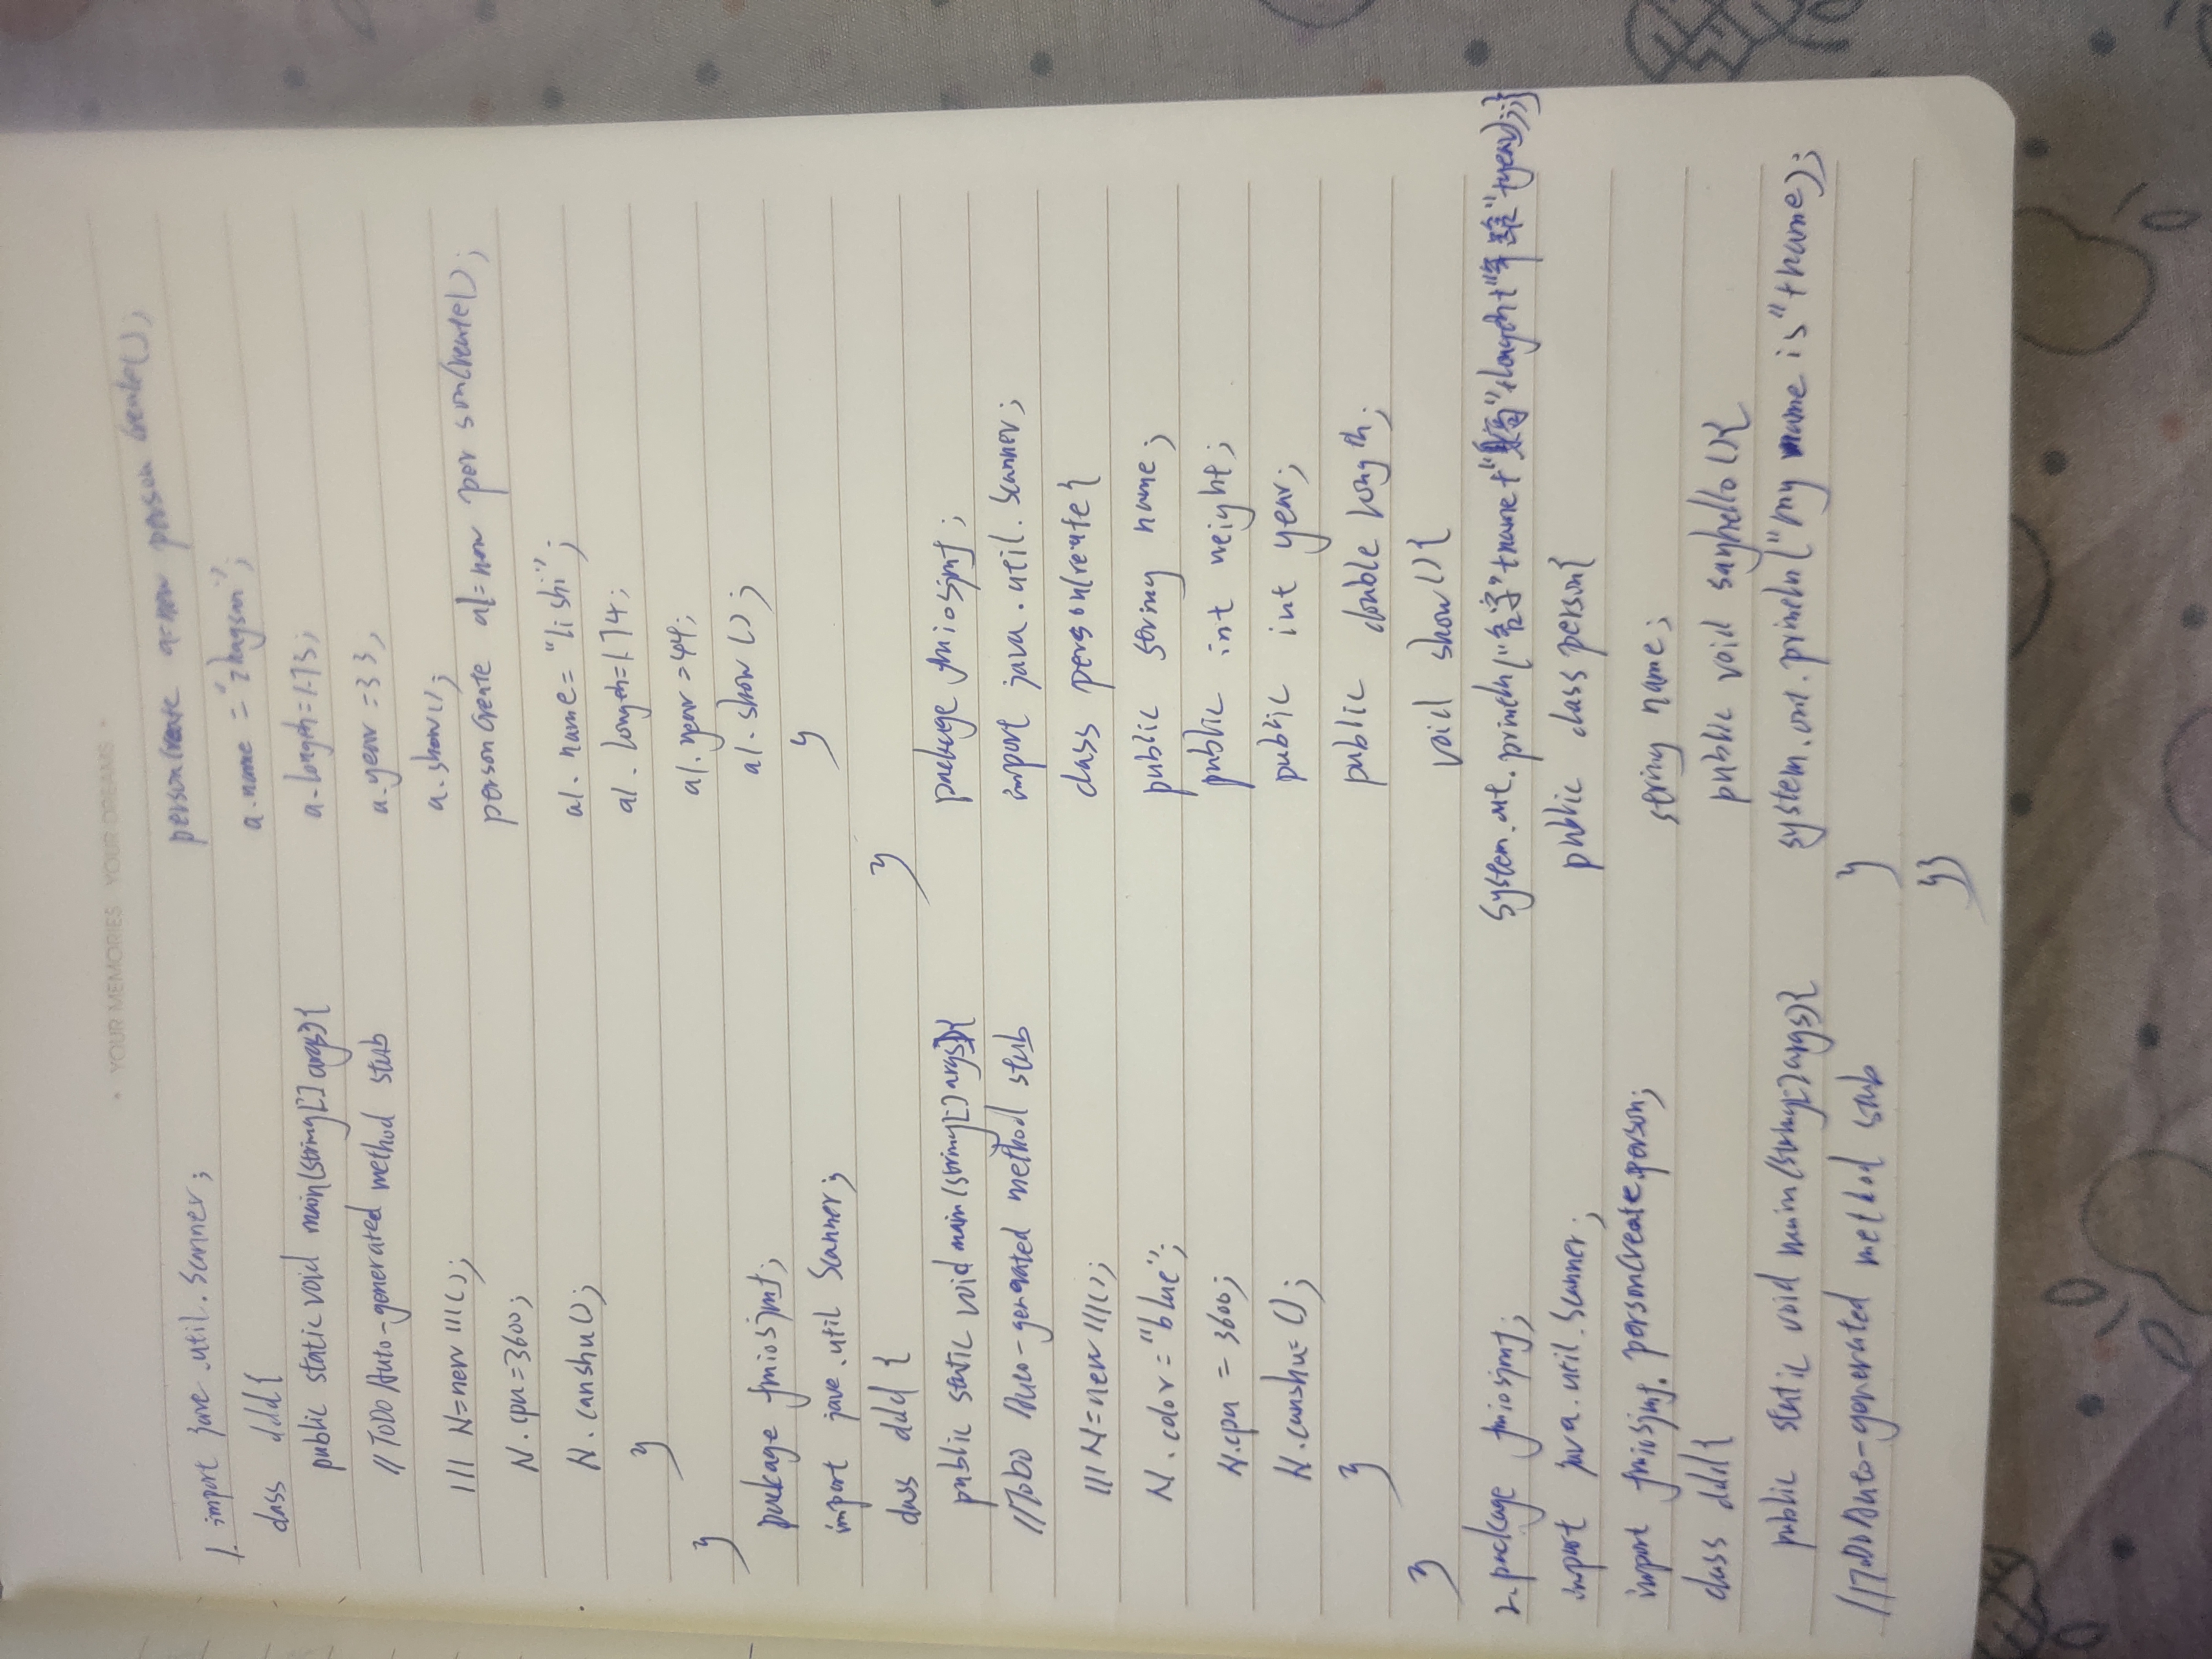 • YOUR MEMORIES YOUR DREAMS •
1. import jave.util.Scanner;
class ddd{
public static void main(string[] args){
//TODO Auto-generated method stub
111 N=new 111();
N.cpu=3600;
N.canshu();
}
}
package fmiosjmf;
import jave.util Scanner;
class ddd{
public static void main(string[] args){
//Todo Auto-generated method stub
111 N=new 111();
N.color="blue";
N.cpu=3600;
N.canshu=();
}
}
2.package fmiosjmf;
import java.util.Scanner;
import fmiosjmf.personCreate.person;
class ddd{
public static void main(string[] args){
//TODO Auto-generated method stub
personCreate a=new personCreate();
a.name="zhagsan";
a.longth=1.73;
a.year=33;
a.show();
personCreate a1=new personCreate();
a1.name="lishi";
a1.longth=1.74;
a1.year=44;
a1.show();
}
}
package fmiosjmf;
import java.util.Scanner;
class personCreate{
public string name;
public int weight;
public int year;
public double longth;
void show(){
System.out.println("名字"+name+"身高"+longth+"年龄"+year);}
public class person{
string name;
public void sayhello(){
system.out.println("my name is"+name);
}
}}